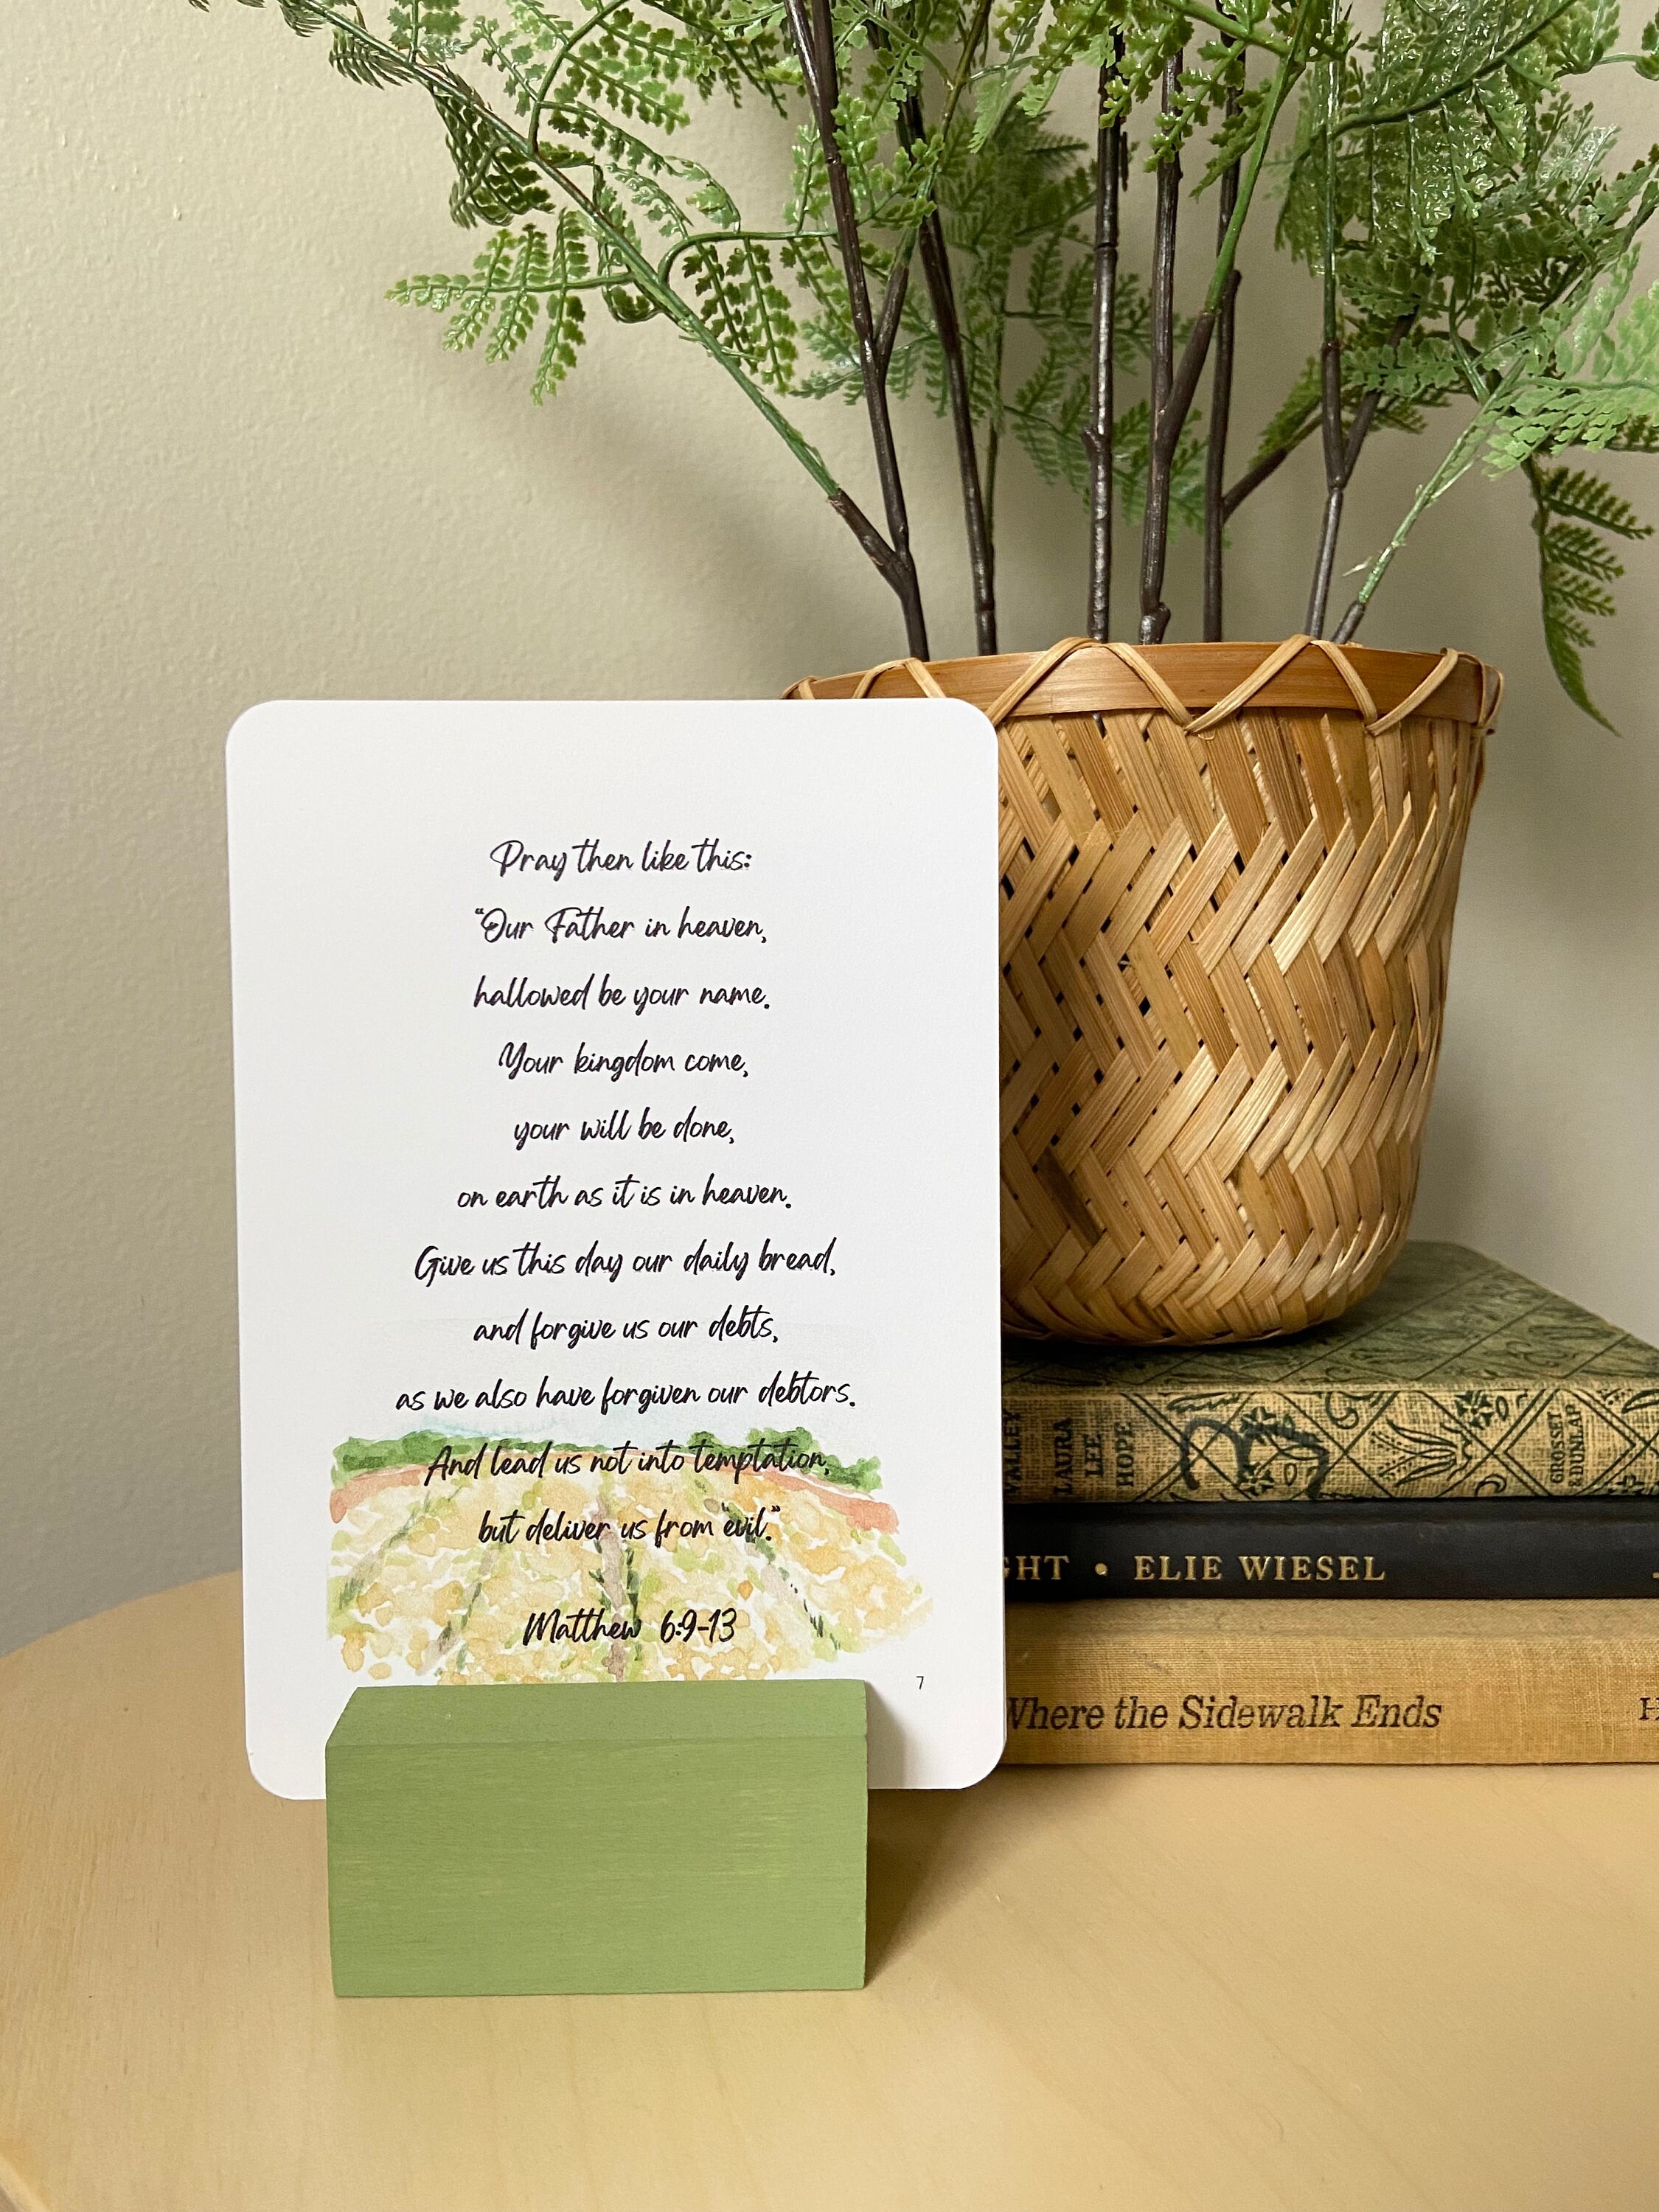 Pray then like this:
“Our Father in heaven,
hallowed be your name.
Your kingdom come,
your will be done,
on earth as it is in heaven.
Give us this day our daily bread,
and forgive us our debts,
as we also have forgiven our debtors.
And lead us not into temptation,
but deliver us from evil.”
Matthew 6:9-13
7
VALLEY
LAURA
LEE
HOPE
GROSSET
& DUNLAP
GHT • ELIE WIESEL
Where the Sidewalk Ends
H